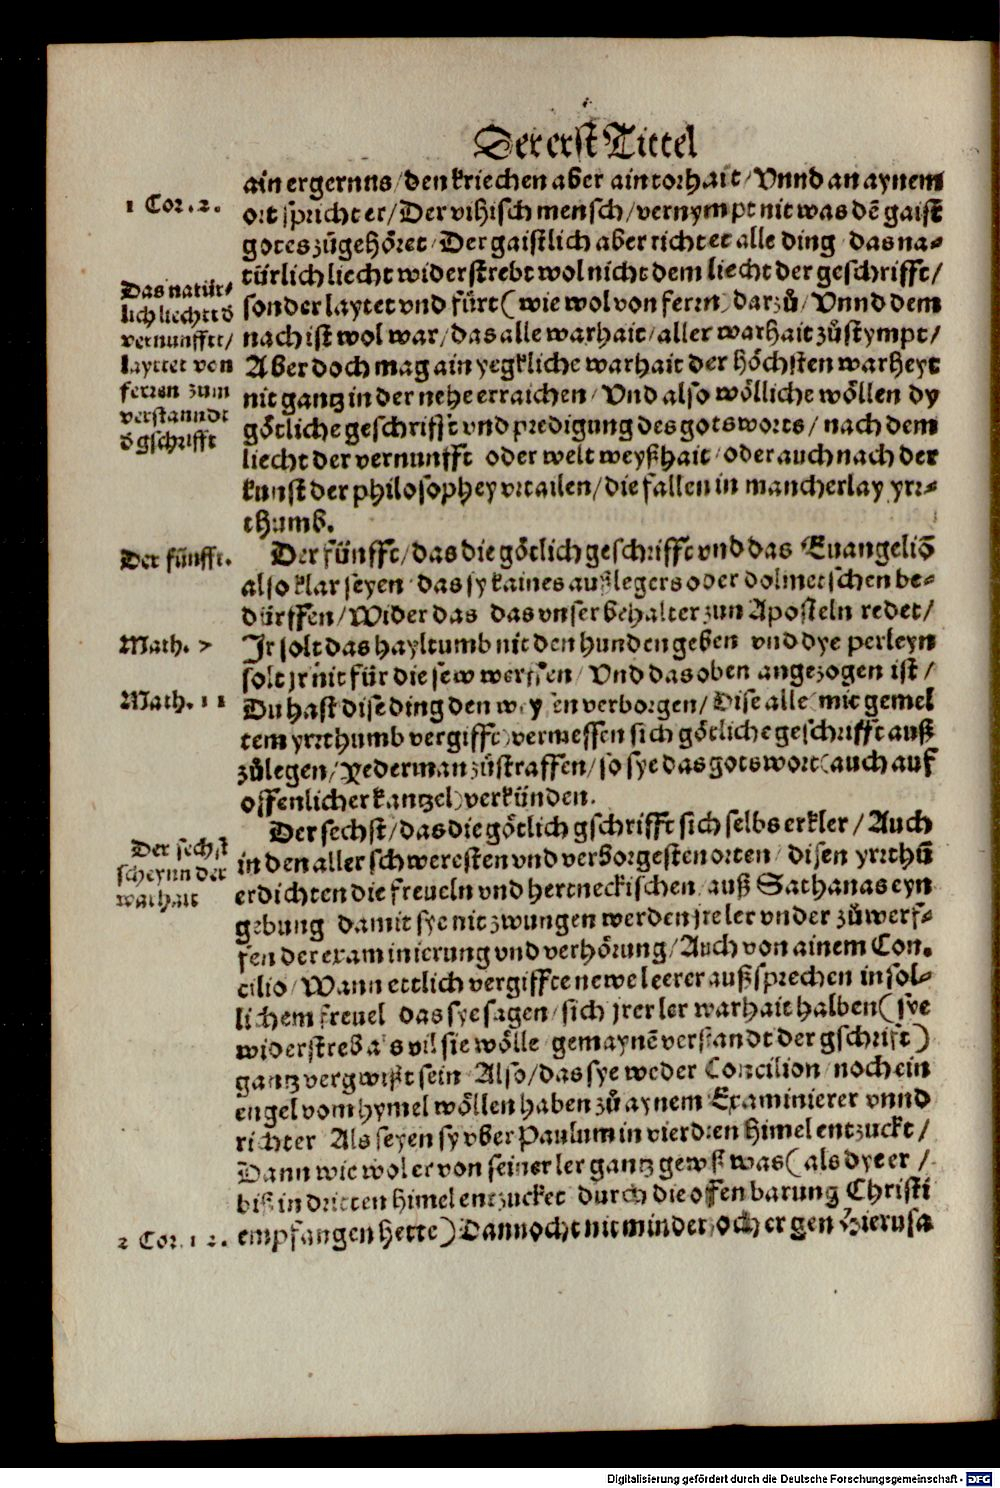 Der erst Tittel
ain ergernns/ den kriechen aber ain torhait/ Vnnd an aynem
1 Cor. 2.
ort spricht er/ Der vihisch mensch/ vernympt nit was dē gaist
gotes zůgehöret/ Der gaistlich aber richtet alle ding das na-
türlich liecht widerstrebt wol nicht dem liecht der geschrifft/
sonder laytet vnd fürt (wie wol von ferrn) darzů/ Vnnd dem
nach ist wol war/ das alle warhait/ aller warhait zůstympt/
Aber doch mag ain yegkliche warhait der höchsten warheyt
nit gantz in der nehe erraichen/ Vnd also wölliche wöllen dy
götliche geschrifft vnd predigung des gotsworts/ nach dem
liecht der vernunfft oder welt weyßhait/ oder auch nach der
kunst der philosophey vrtailen/ die fallen in mancherlay yrr-
thumb.
Das natür-
lich liecht d
vernunfft/
layttet von
ferren zum
verstanndt
d gschrifft
Der fünfft.
Der fünfft/ das die götlich geschrifft vnd das Euangeliō
also klar seyen das sy kaines außlegers oder dolmetschen be-
dürffen/ Wider das das vnser behalter zun Aposteln redet/
Math. 7
Jr solt das hayltumb nit den hunden geben vnd dye perleyn
solt jr nit für die sew werffen/ Vnd das oben angezogen ist/
Math. 11
Du hast dise ding den weysen verborgen/ Dise alle (mit gemel
tem yrrthumb vergifft) vermessen sich götliche geschrifft auß
zůlegen/ Yederman zůstraffen/ so sye das gotswort (auch auf
offenlicher kantzel) verkünden.
Der sechst/ das die götlich gschrifft sich selbs erkler/ Auch
Der sechst
scheynnder
warhait
in den aller schweresten vnd verborgesten orten/ disen yrrthū
erdichten die freueln vnd hertneckischen auß Sathanas eyn
gebung damit sye nit zwungen werden jre ler vnder zůwerf-
fen der examinierung vnd verhörung/ Auch von ainem Con.
cilio/ Wann ettlich vergiffte newe leerer außsprechen in sol-
lichem freuel das sye sagen/ sich jrer ler warhait halben (sye
widerstreb als vil sie wölle gemaynē verstandt der gschrift)
gantz vergwißt sein Also/ das sye weder Concilion noch ein
engel vom hymel wöllen haben zů aynem Examinierer vnnd
richter Als seyen sy vber Paulum in vierdten himel entzuckt/
Dann wie wol er von seiner ler gantz gewß was (als dye er/
biß in dritten himel entzucket durch die offenbarung Christi
2 Cor. 12.
empfangen hette) Dannocht nit minder zoch er gen Hierusa
Digitalisierung gefördert durch die Deutsche Forschungsgemeinschaft - DFG